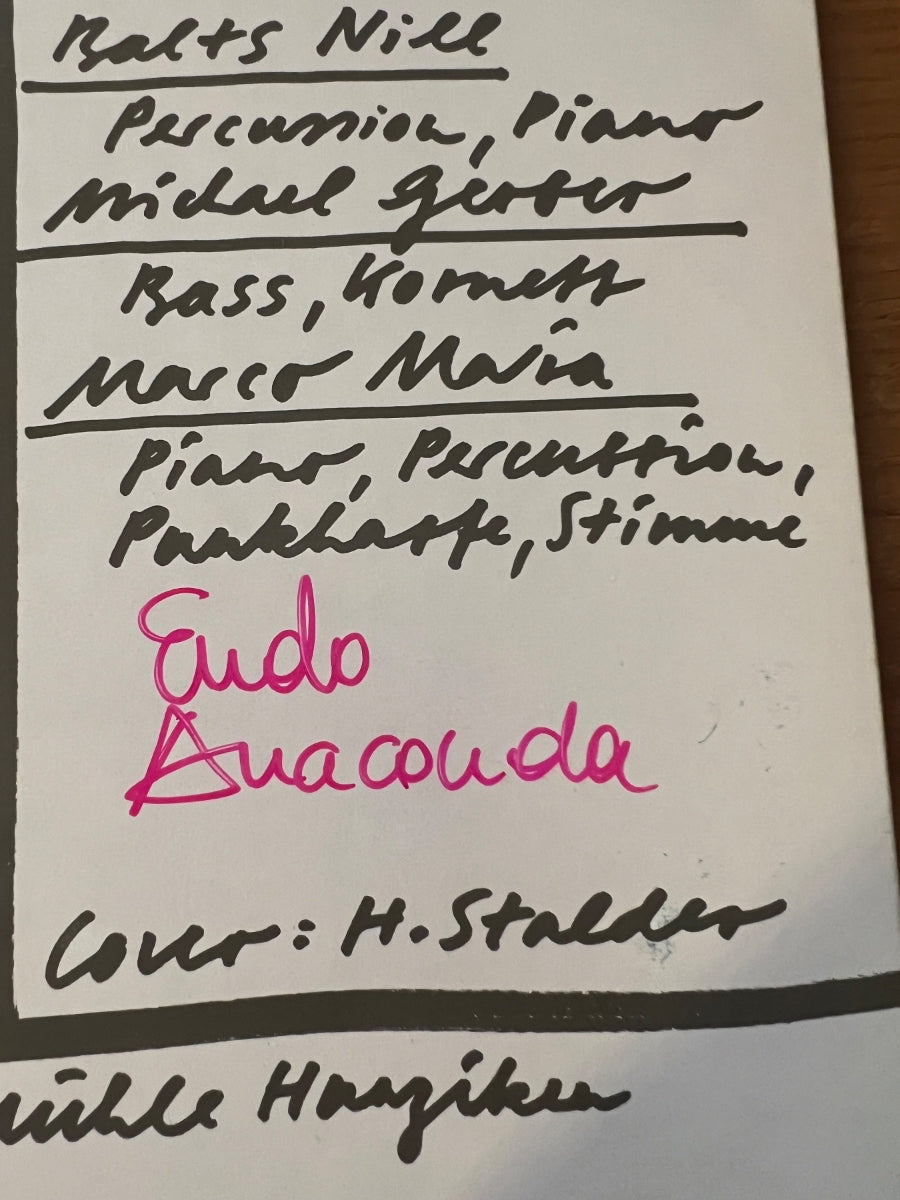 Balts Nill
Percussion, Piano
Michael Gerber
Bass, Kornett
Marco
Piano, Percussion,
Punkharfe, Stimme
Endo
Anaconda
Cover: H. Stalder
ühle Hunziken